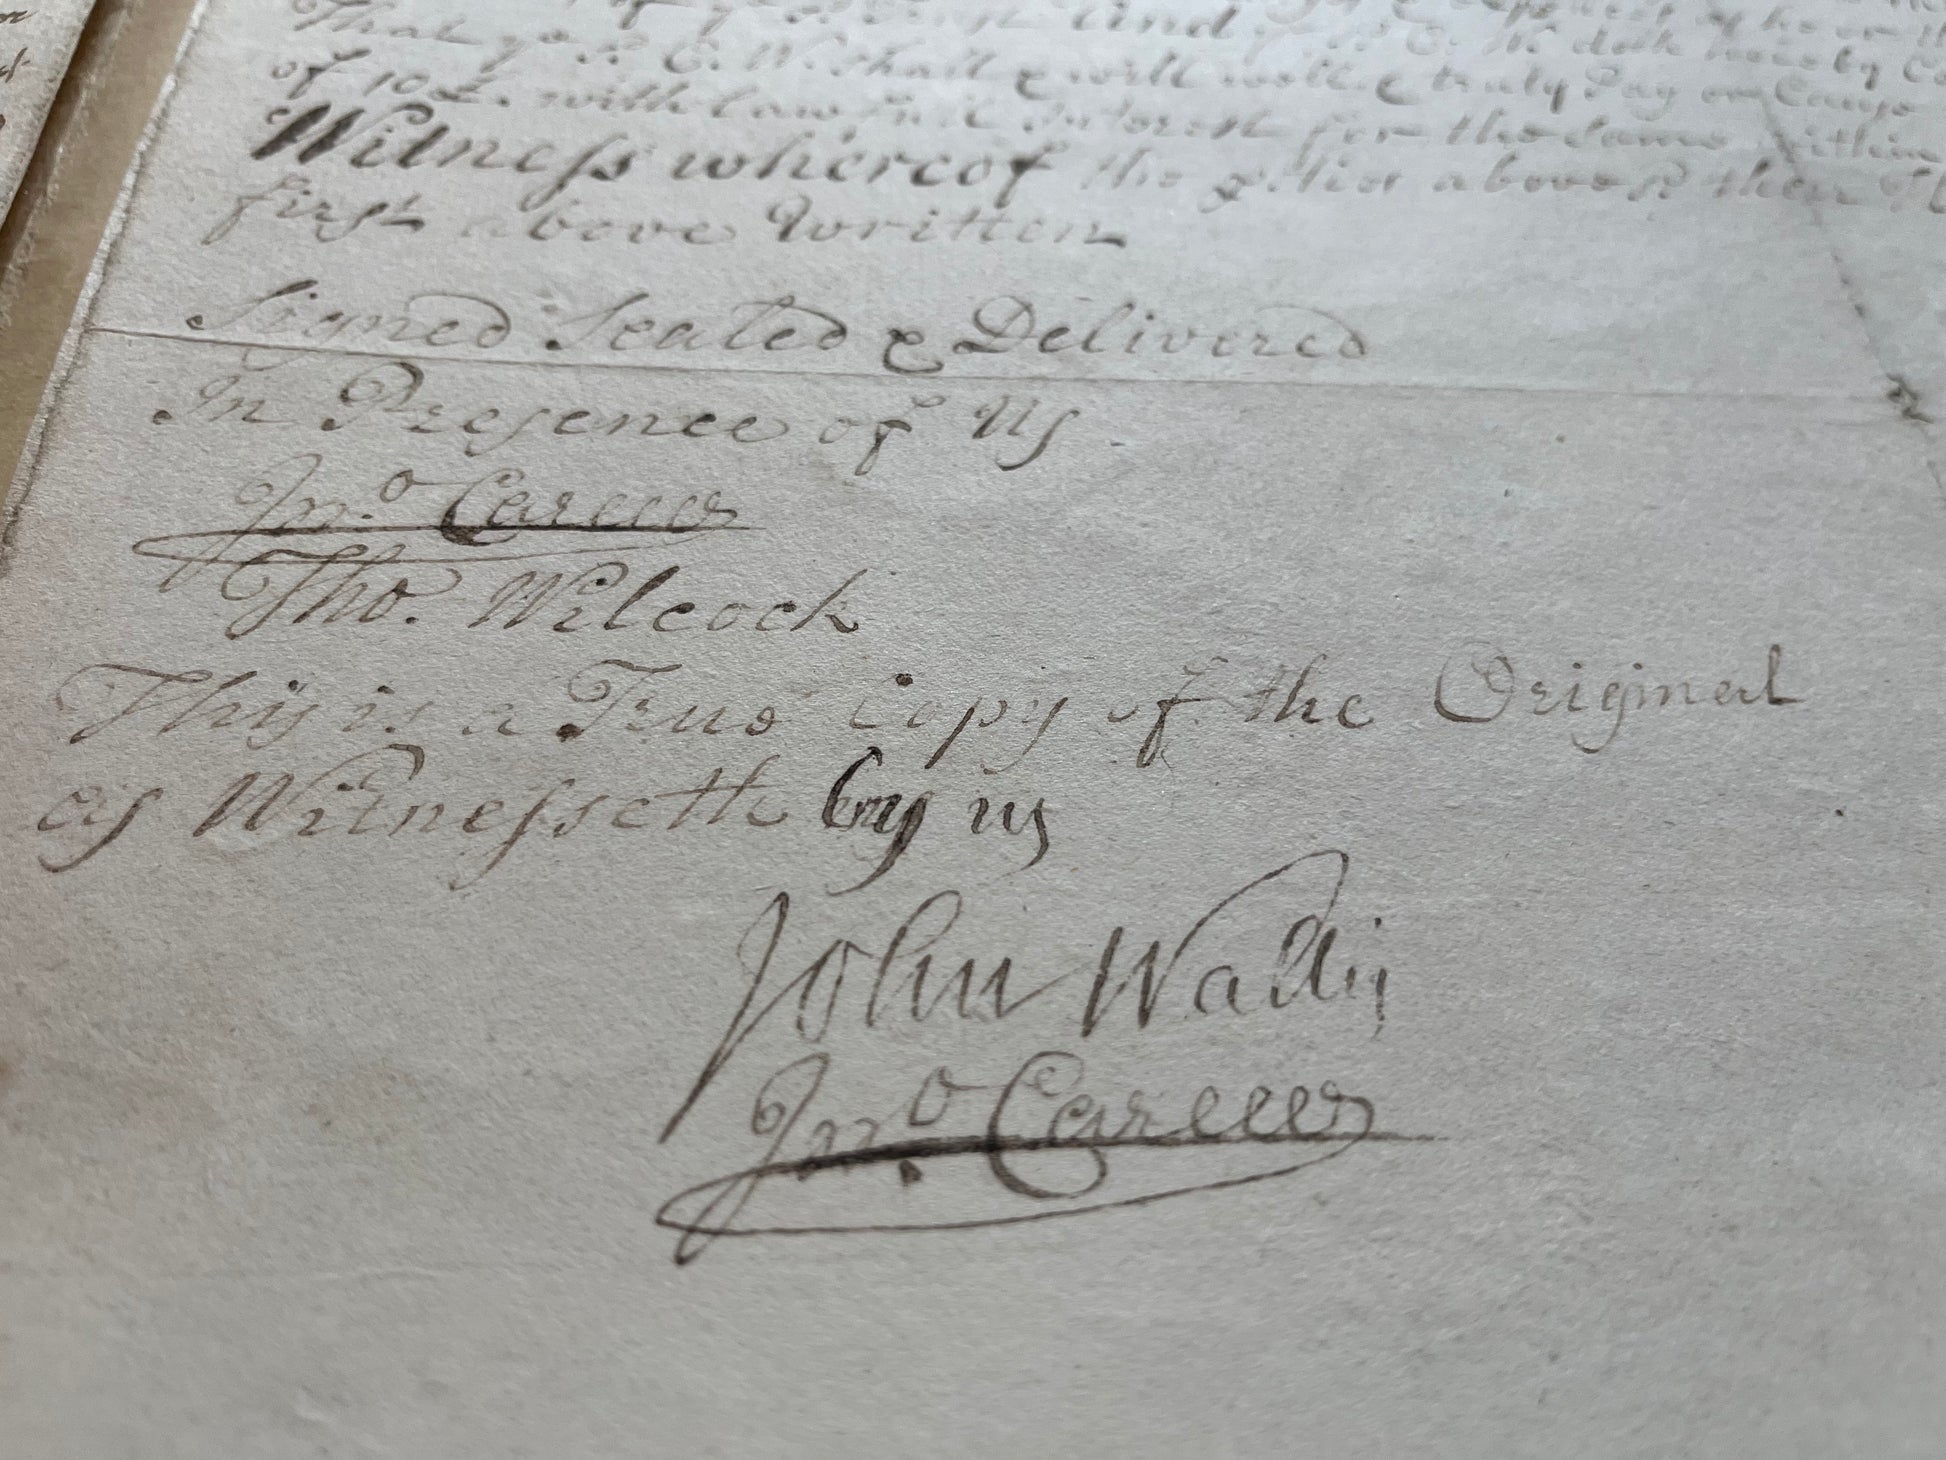 That yᵉ sᵈ C. W. shall & will well & truly Pay or Cause
of 10£. with lawful Interest for the same within
Witneſs whereof the pties abovesᵈ
first above Written
Signed Sealed & Delivered
In Presence of Us
Jnᵒ. Carew
Tho. Wilcock
This is a True Copy of the Original
as Witneſseth by us
John Wallis
Jnᵒ. Carew